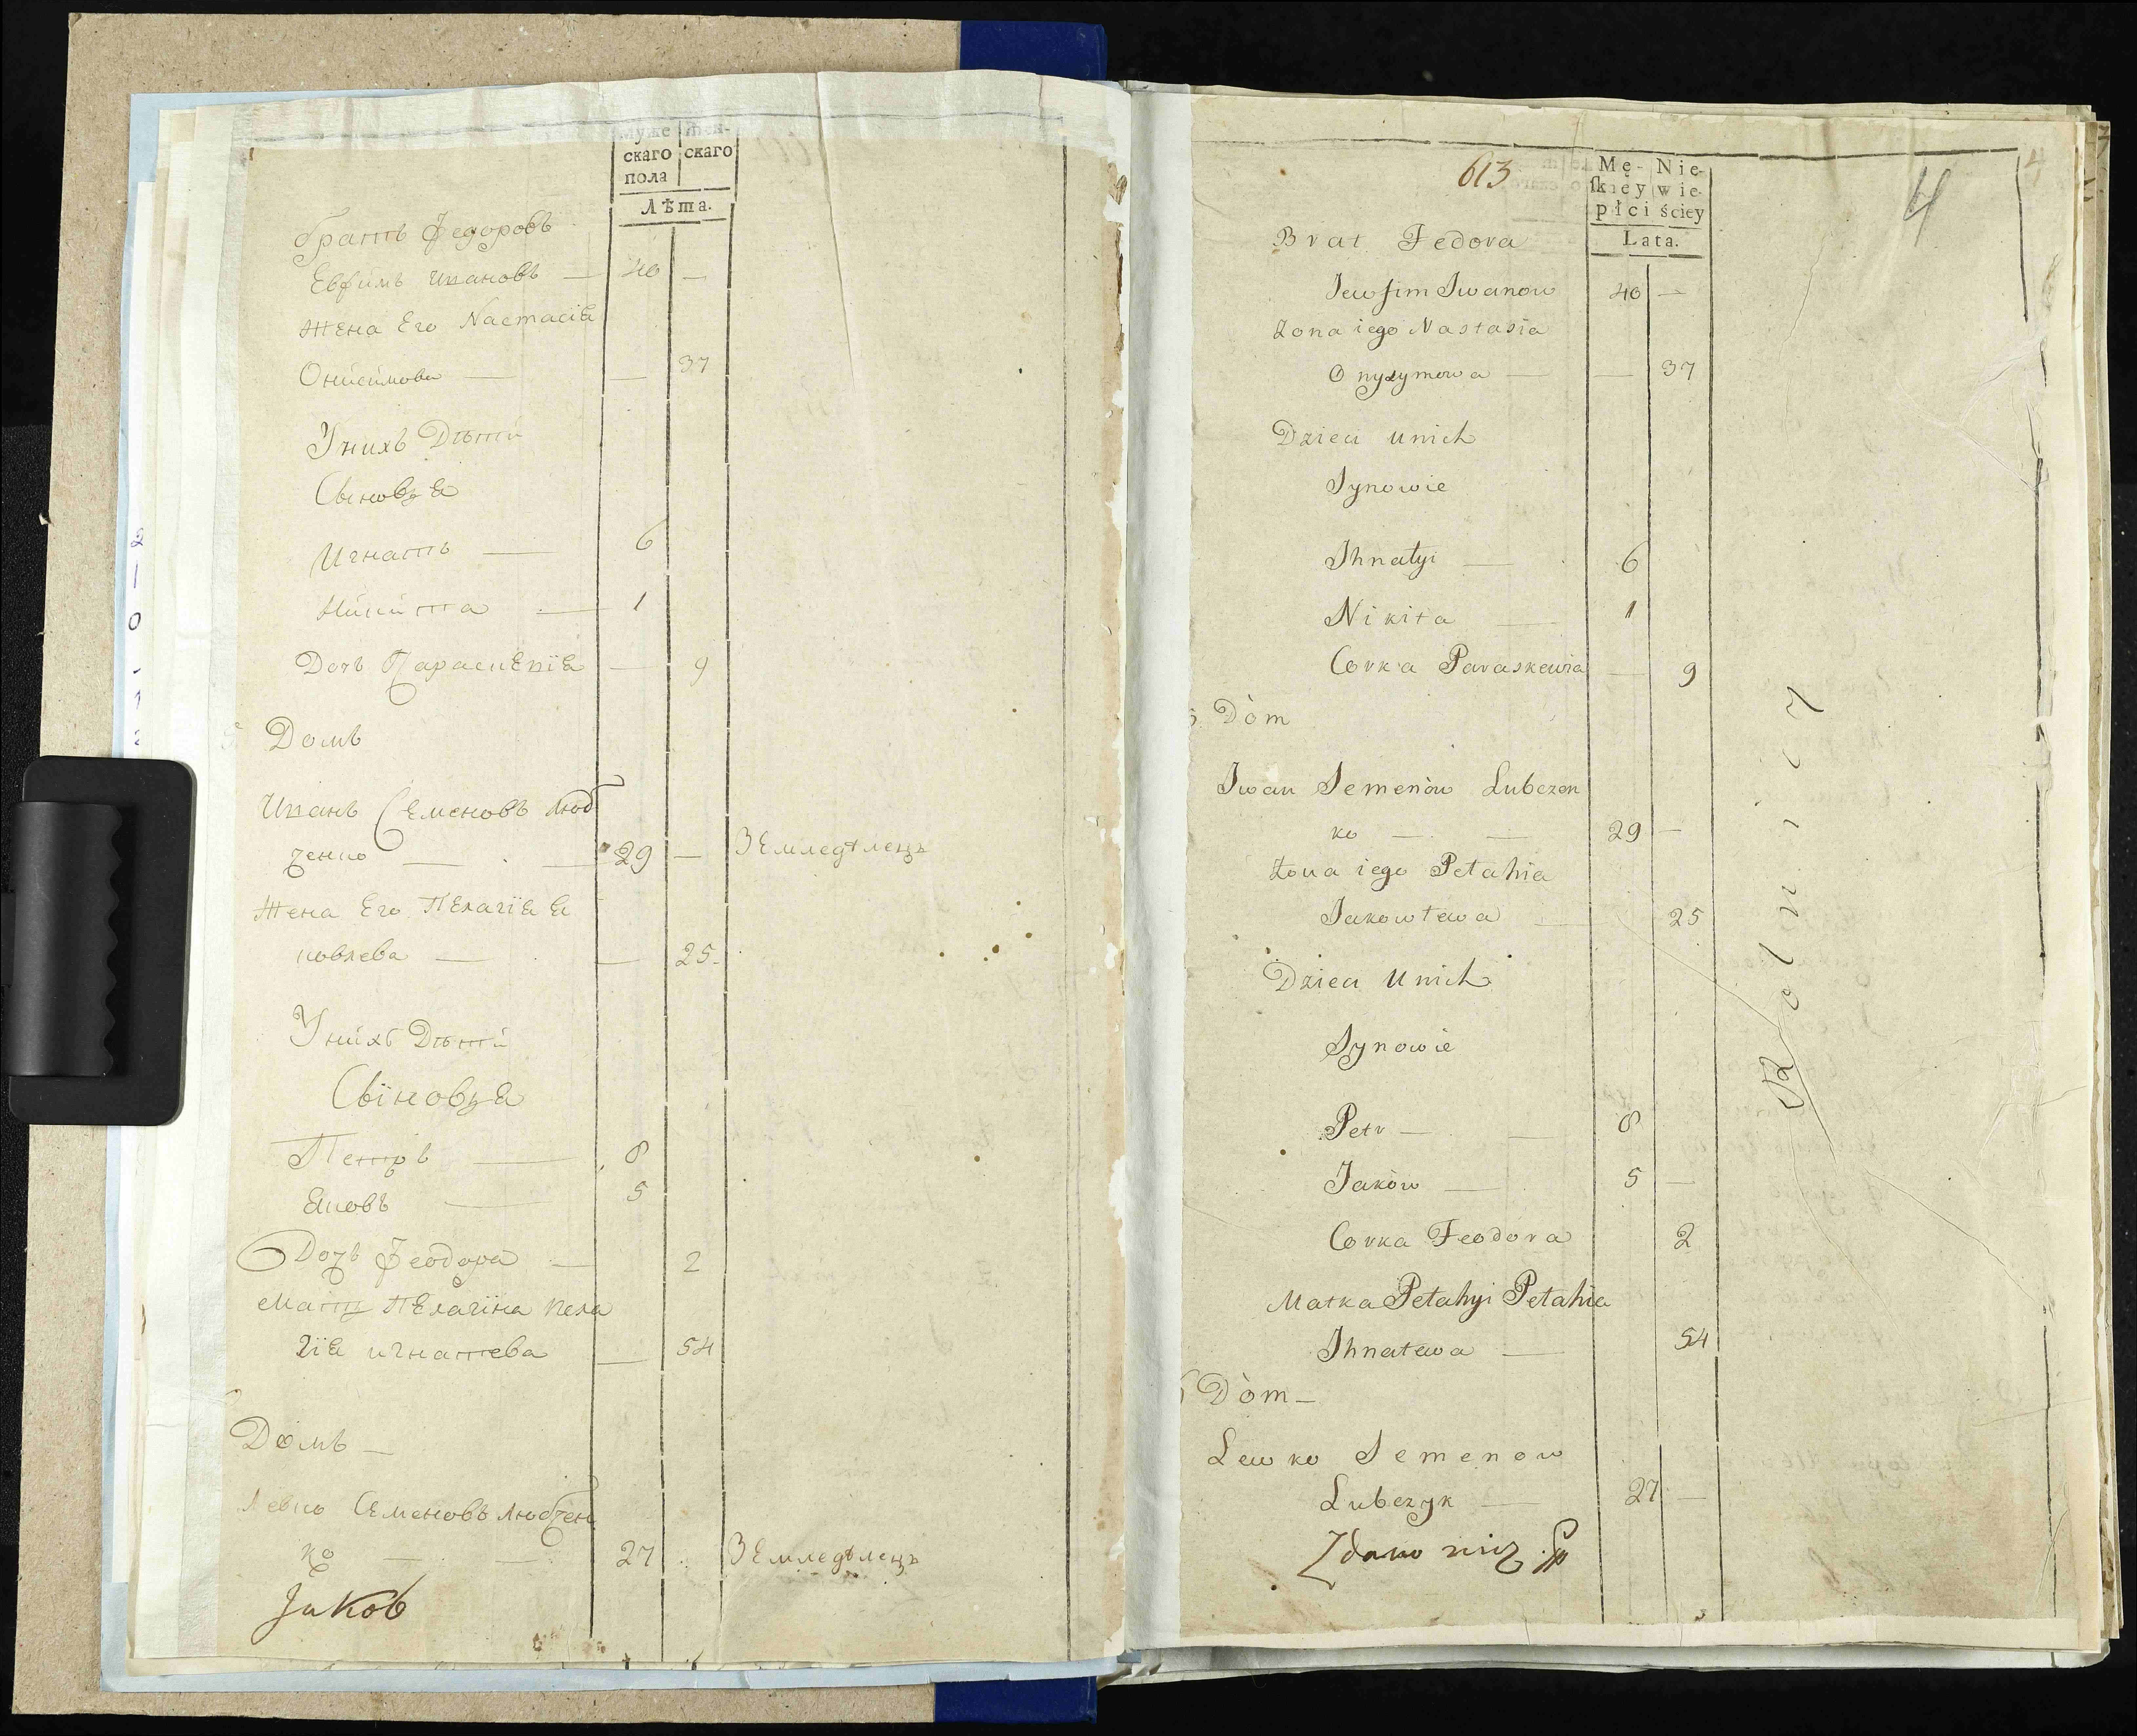 муже жен-
скаго скаго
пола
Лѣта.
братъ Федоровъ
Евфимъ Ивановъ — 40 —
жена Его Настасія
Онисимова — — 37
У нихъ Дѣти
Сыновья
Игнатъ — 6
Никита — 1
Дочь Параскевія — 9
5. Домъ
Иванъ Семеновъ Люб
ченко — — 29 — Земледѣлецъ
жена Его Пелагія Я
ковлева — — 25
У нихъ Дѣти
Сыновья
Петръ — 8
Яковъ — 5
Дочь Феодора — 2
Мать Пелагіина Пела
гія игнатева — 54
Домъ —
Левко Семеновъ Любчен
ко — — 27 Земледѣлецъ
Jakob
613
4
Mę- Nie-
skiey wie-
płci ściey
Lata.
Brat Fedora
Jewfim Iwanow 40 —
Żona iego Nastasia
Onyzymowa — — 37
Dzieci u nich
Synowie
Ihnatyi — 6
Nikita — 1
Corka Paraskewia — 9
5. Dòm
Iwan Semenòw Lubczen
ko — — 29 —
Żona iego Pełahia
Jakowlewa — 25
Dzieci u nich
Synowie
Petr — — 8
Jakòw — 5 —
Corka Feodora 2
Matka Pełahyi Pełahia
Ihnatewa — 54
6 Dòm —
Lewko Semenow
Lubczyk — 27 —
Rolnicy